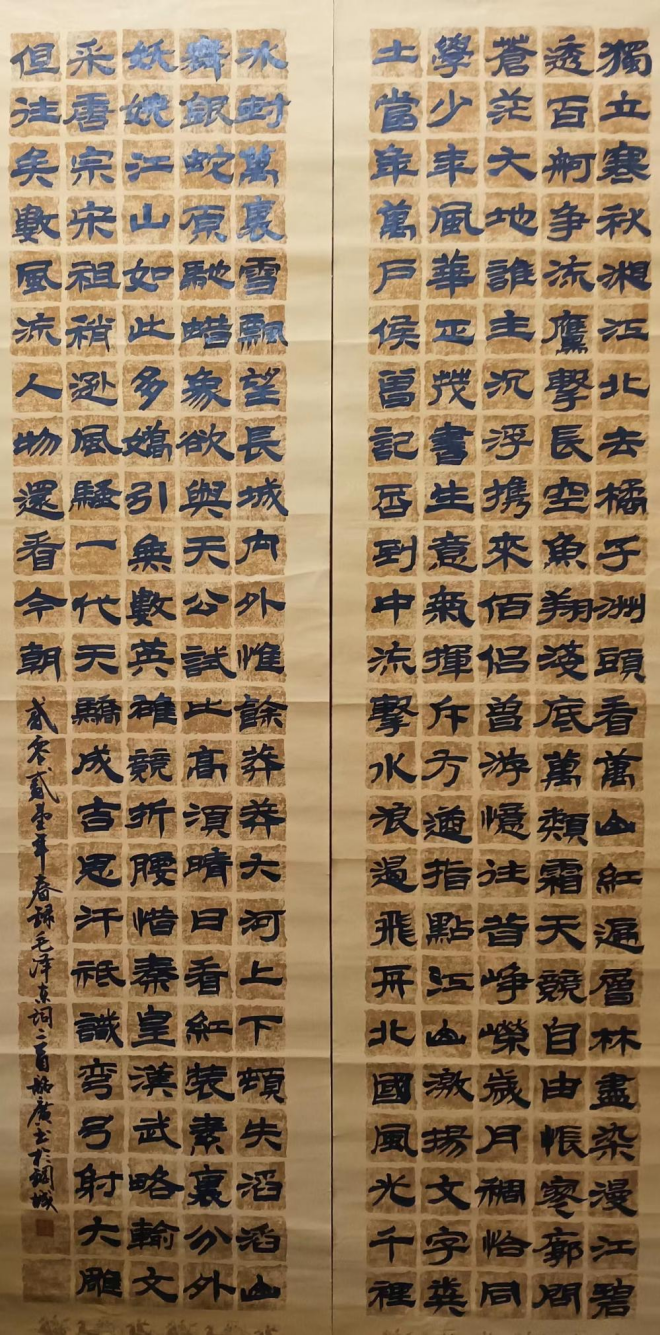 獨立寒秋湘江北去橘子洲頭看萬山紅遍層林盡染漫江碧
透百舸争流鷹擊長空魚翔淺底萬類霜天競自由悵寥廓問
蒼茫大地誰主沉浮携來佰侣曾游憶往昔崢嶸歲月稠恰同
學少年風華正茂書生意氣揮斥方遒指點江山激揚文字糞
土當年萬户侯曾記否到中流擊水浪遏飛舟北國風光千裡
冰封萬裏雪飄望長城内外惟餘莽莽大河上下頓失滔滔山
舞銀蛇原馳蜡象欲與天公試比高須晴日看紅裝素裏分外
妖嬈江山如此多嬌引無數英雄競折腰惜秦皇漢武略輸文
采唐宗宋祖稍遜風騷一代天驕成吉思汗祇識彎弓射大雕
但往矣數風流人物還看今朝
貳零貳壹年春録毛澤東詞二首廣书於銅城